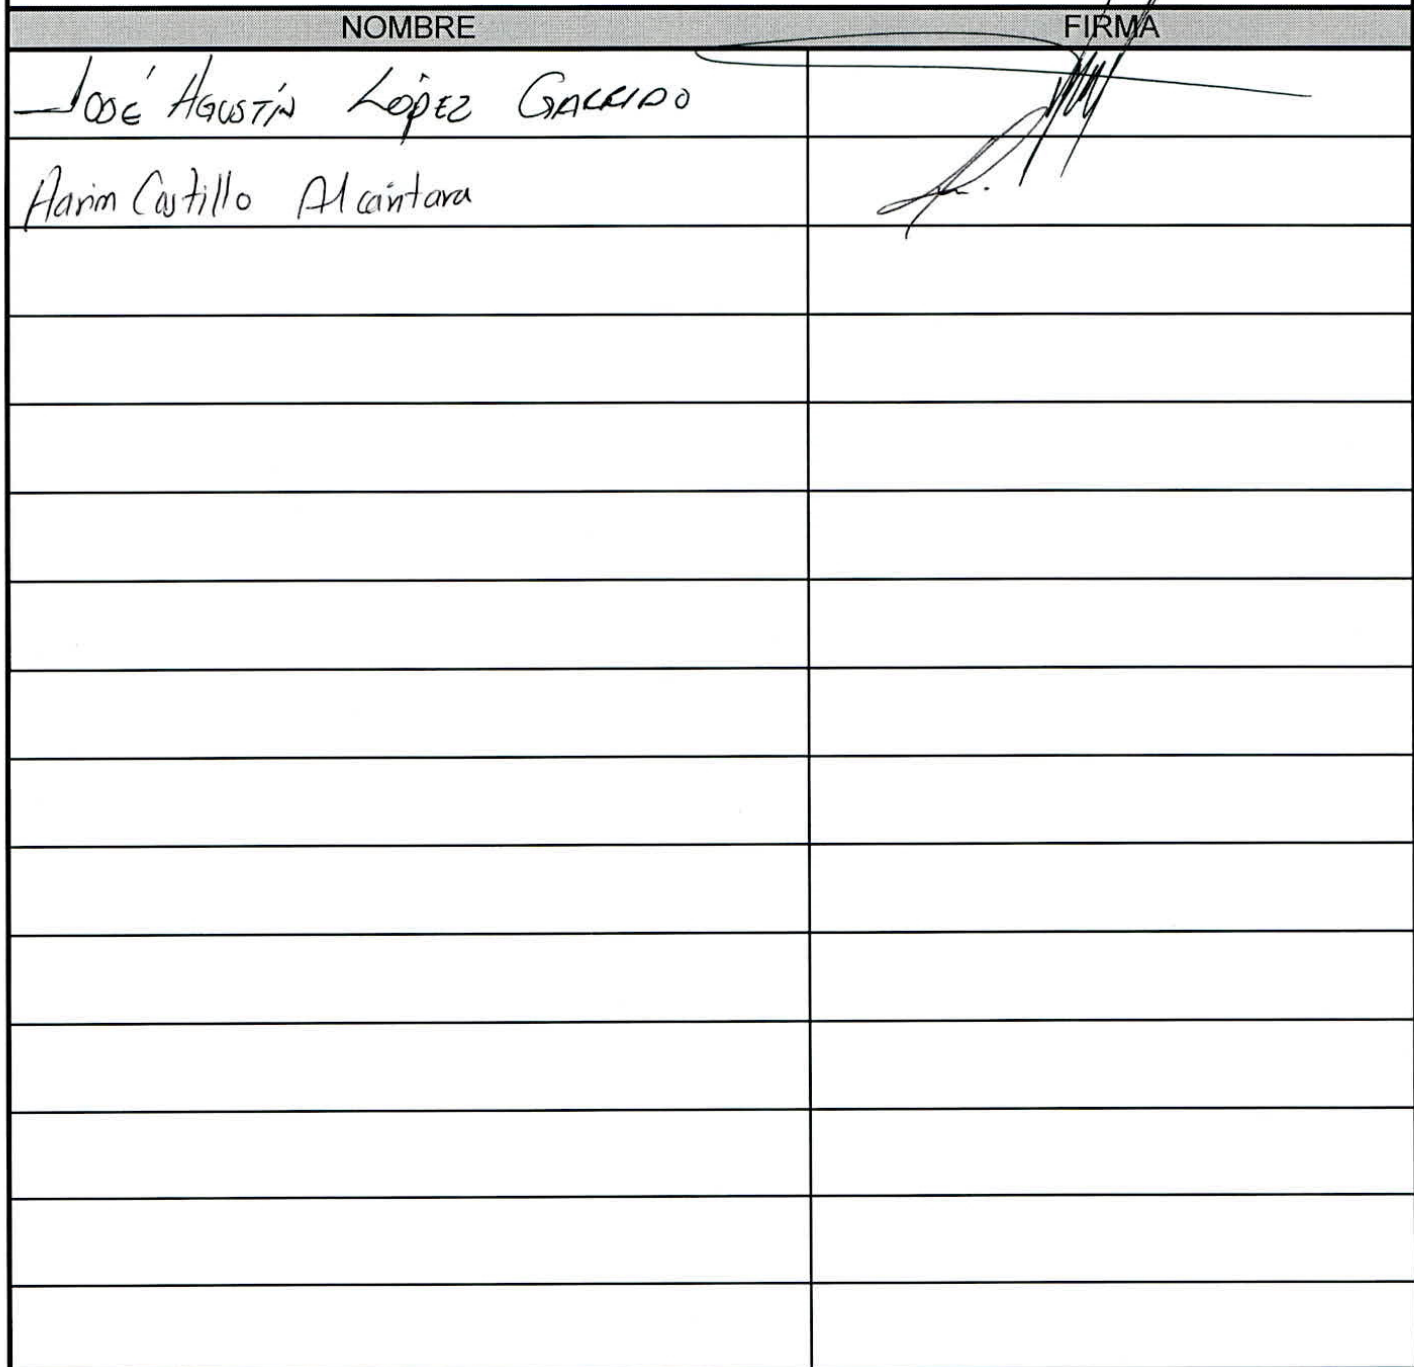 NOMBRE FIRMA
JOSÉ AGUSTÍN LÓPEZ GARRIDO
Castillo Alcántara